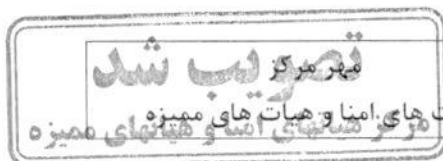 تصویب شد
مهر مرکز
هیأت های امنا و هیأت های ممیزه
مرکز هیأتهای امنا و هیأتهای ممیزه